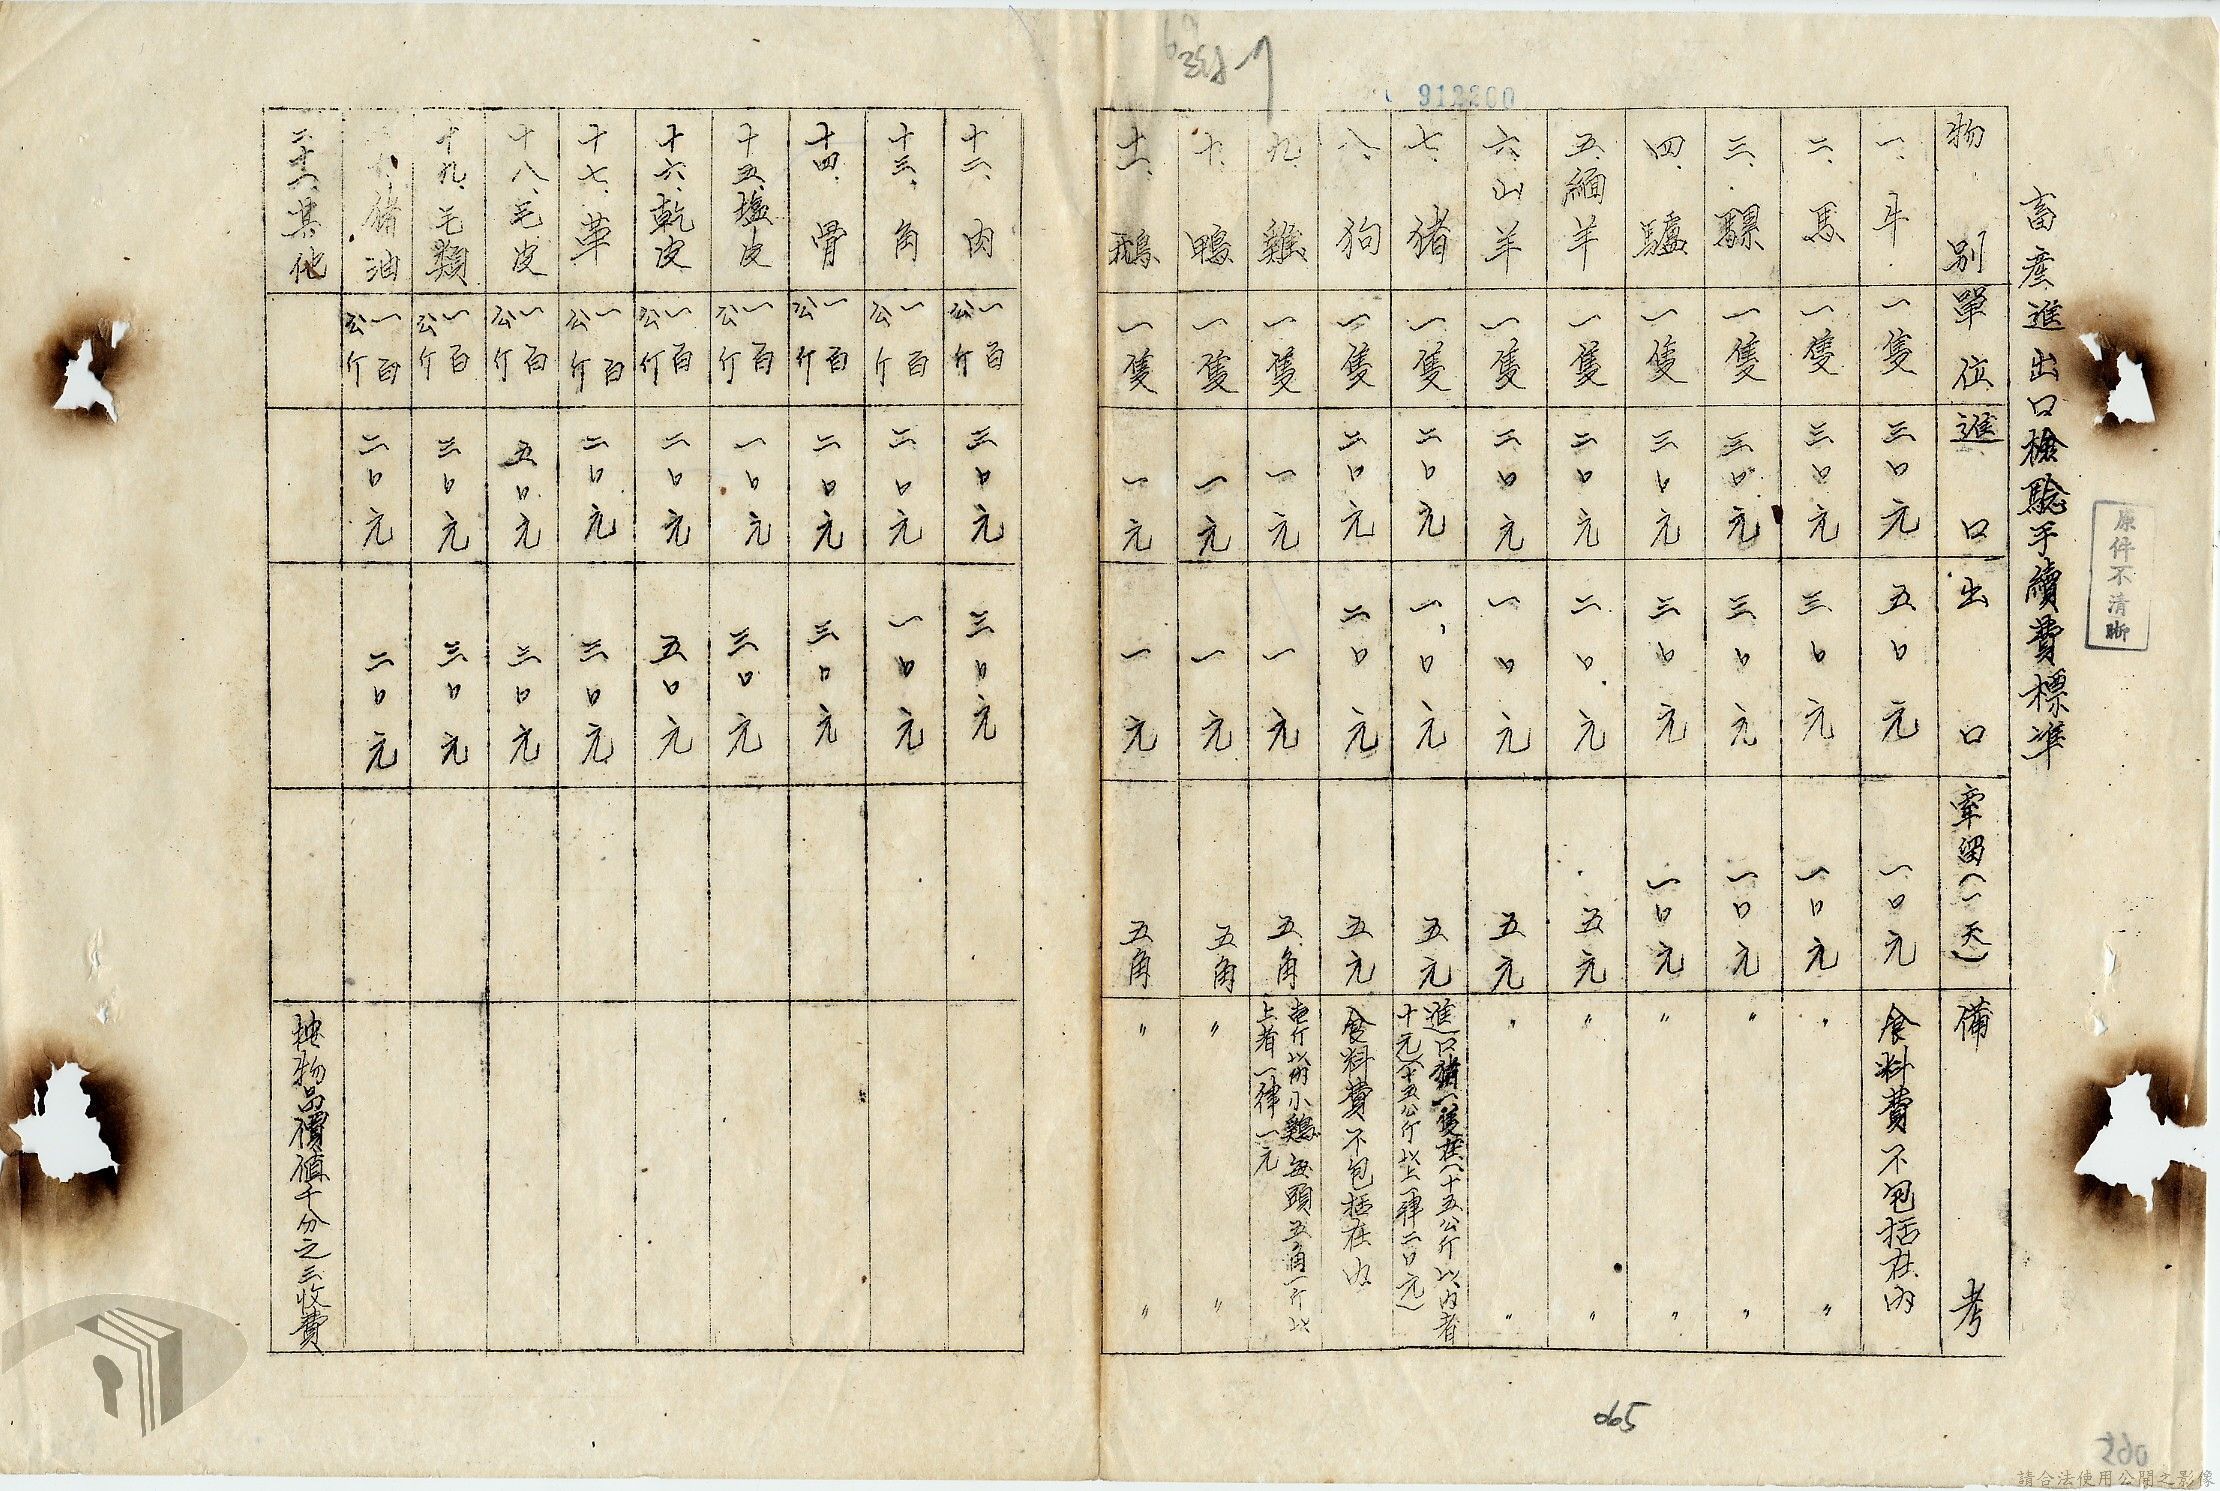 912200
原件不清晰
畜產進出口檢驗手續費標準
物別 單位 進口 出口 牽留(一天) 備考
一、牛 一隻 三〇元 五〇元 一〇元 食料費不包括在內
二、馬 一隻 三〇元 三〇元 一〇元 〃 〃
三、騾 一隻 三〇元 三〇元 一〇元 〃 〃
四、驢 一隻 三〇元 三〇元 一〇元 〃 〃
五、緬羊 一隻 二〇元 二〇元 五元 〃 〃
六、山羊 一隻 二〇元 一〇元 五元 〃 〃
七、猪 一隻 二〇元 一、〇元 五元 進口猪一隻在(十五公斤以內者
十元)(十五公斤以上一律二〇元)
八、狗 一隻 二〇元 二〇元 五元 食料費不包括在內
九、雞 一隻 一元 一元 五角 斤以內小鷄每頭五角一斤以
上者一律一元
十、鴨 一隻 一元 一元 五角 〃 〃
十一、鵝 一隻 一元 一元 五角 〃 〃
十二、肉 一百公斤 三〇元 三〇元
十三、角 一百公斤 二〇元 一〇元
十四、骨 一百公斤 二〇元 三〇元
十五、塩皮 一百公斤 一〇元 三〇元
十六、乾皮 一百公斤 二〇元 五〇元
十七、革 一百公斤 二〇元 三〇元
十八、毛皮 一百公斤 五〇元 三〇元
十九、毛類 一百公斤 三〇元 三〇元
猪油 一百公斤 二〇元 二〇元
二十一、其他 按物品價值千分之三收費
065
請合法使用公開之影像